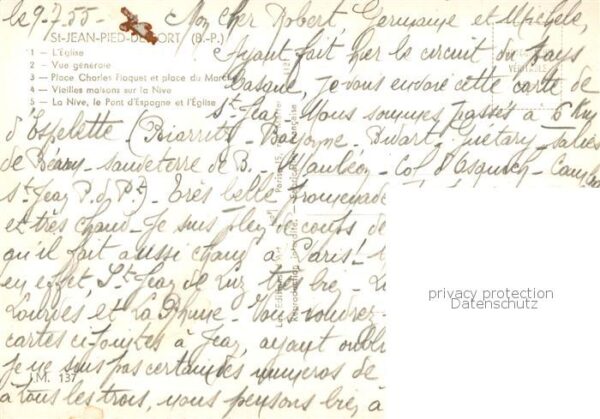 le 9.7.55 - Mon cher Robert, Germaine et Michèle,
St-JEAN-PIED-DE-PORT (B.-P.)
1 - L'Église
2 - Vue générale
3 - Place Charles Floquet et place du Marché
4 - Vieilles maisons sur la Nive
5 - La Nive, le Pont d'Espagne et l'Église
Ayant fait hier le circuit du Pays
Basque, je vous envoie cette carte de
St Jean. Nous sommes passés à 6 Km
d'Espelette (Biarritz - Bayonne - Bidart - Guétary - Salies
de Béarn - Sauveterre de B. - Mauléon - Col d'Osquich - Cambo
St Jean P. d. P.) - Très belle promenade
et très chaud - Je suis plein de coups de
qu'il fait aussi chaud à Paris!
en effet, St Jean de Luz très bien -
Lourdes et La Rhune - Vous voudrez
cartes ci-jointes à Jean, ayant oublié
je ne suis pas certain des numéros de
J.M. 137
à tous les trois, nous pensons bien à
privacy protection
Datenschutz